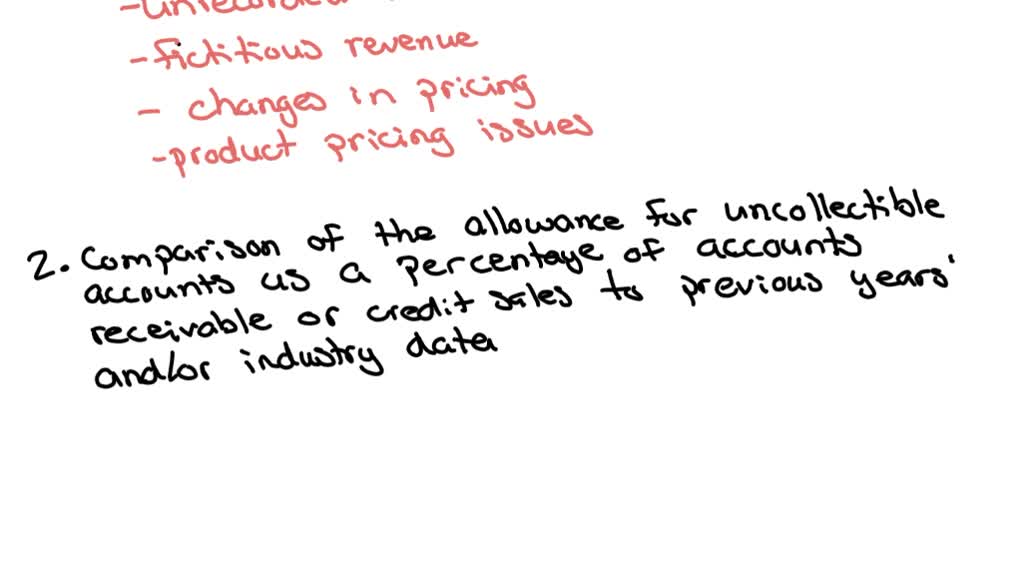 - unrecorded
- fictitious revenue
- changes in pricing
- product pricing issues
2. Comparison of the allowance for uncollectible
accounts as a percentage of accounts
receivable or credit sales to previous years'
and/or industry data